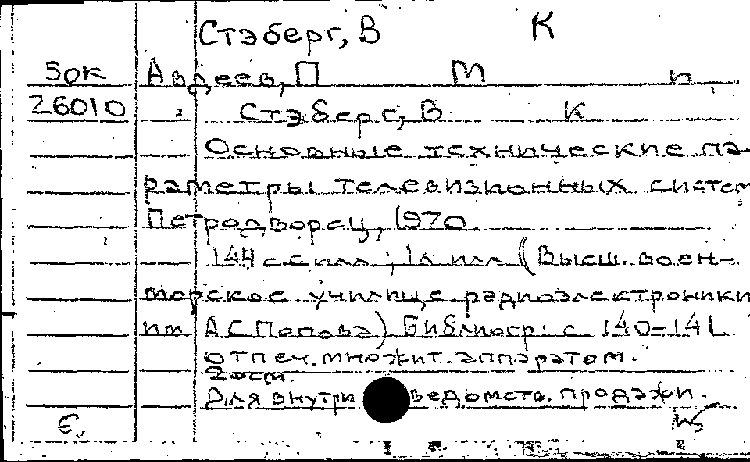 Стэберг, В К
50к Авдеев, П М п.
26010 , Стэберг, В К
Основные технические па-
раметры телевизионных систем
Петродворец, 1970
144 с с илл; 1л илл (Высш. воен-
морское училище радиоэлектроники
им А С Попова) Библиогр: с 140-141
отпеч. множит. аппаратом.
Для внутри ведомств. продажи.